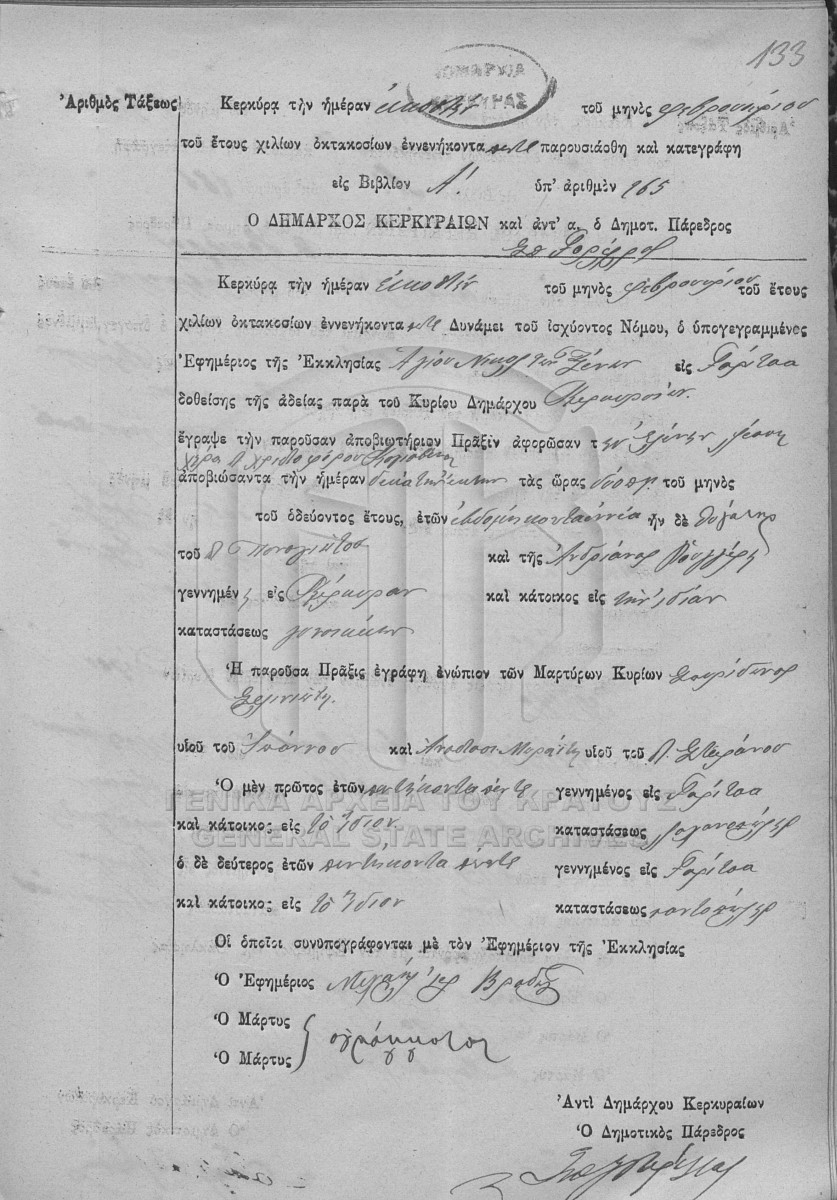 133
Ἀριθμὸς Τάξεως
Κερκύρᾳ τὴν ἡμέραν εἰκοστὴν τοῦ μηνὸς Φεβρουαρίου
τοῦ ἔτους χιλίων ὀκτακοσίων ἐννενήκοντα πέντε παρουσιάσθη καὶ κατεγράφη
εἰς Βιβλίον Α! ὑπ' ἀριθμὸν 165
Ο ΔΗΜΑΡΧΟΣ ΚΕΡΚΥΡΑΙΩΝ καὶ ἀντ' α. ὁ Δημοτ. Πάρεδρος
Κερκύρᾳ τὴν ἡμέραν εἰκοστὴν τοῦ μηνὸς Φεβρουαρίου τοῦ ἔτους
χιλίων ὀκτακοσίων ἐννενήκοντα πέντε Δυνάμει τοῦ ἰσχύοντος Νόμου, ὁ ὑπογεγραμμένος
Ἐφημέριος τῆς Ἐκκλησίας Ἁγίου Νικολ τῶν Ξένων εἰς Γαρίτσα
δοθείσης τῆς ἀδείας παρὰ τοῦ Κυρίου Δημάρχου Κερκυραίων
ἔγραψε τὴν παροῦσαν ἀποβιωτήριον Πρᾶξιν ἀφορῶσαν τὴν Ἑλένην
χήρα Π Χριστοφόρου
ἀποβιώσαντα τὴν ἡμέραν δεκάτην ἕκτην τὰς ὥρας δύο πμ. τοῦ μηνὸς
τοῦ ὁδεύοντος ἔτους, ἐτῶν ἑβδομήκοντα ἐννέα ἦν δὲ θυγάτηρ
τοῦ Π Παναγιώτου καὶ τῆς Ἀνδριάνας Βούλγαρη
γεννημένη εἰς Κέρκυραν καὶ κάτοικος εἰς τὴν ἰδίαν
καταστάσεως
Ἡ παροῦσα Πρᾶξις ἐγράφη ἐνώπιον τῶν Μαρτύρων Κυρίων Σπυρίδωνος
υἱοῦ τοῦ Ἰωάννου καὶ Ἀναστασι υἱοῦ τοῦ Π. Στεφάνου
Ὁ μὲν πρῶτος ἐτῶν πεντήκοντα πέντε γεννημένος εἰς Γαρίτσα
καὶ κάτοικος εἰς τὸ ἴδιον καταστάσεως λαχανοπώλης
ὁ δὲ δεύτερος ἐτῶν πεντήκοντα πέντε γεννημένος εἰς Γαρίτσα
καὶ κάτοικος εἰς τὸ ἴδιον καταστάσεως παντοπώλης
Οἱ ὁποῖοι συνυπογράφονται μὲ τὸν Ἐφημέριον τῆς Ἐκκλησίας
Ὁ Ἐφημέριος Μιχαὴλ ἱερ
Ὁ Μάρτυς
Ὁ Μάρτυς
ἀγράμματοι
Ἀντὶ Δημάρχου Κερκυραίων
Ὁ Δημοτικὸς Πάρεδρος
ΓΕΝΙΚΑ ΑΡΧΕΙΑ ΤΟΥ ΚΡΑΤΟΥΣ
GENERAL STATE ARCHIVES